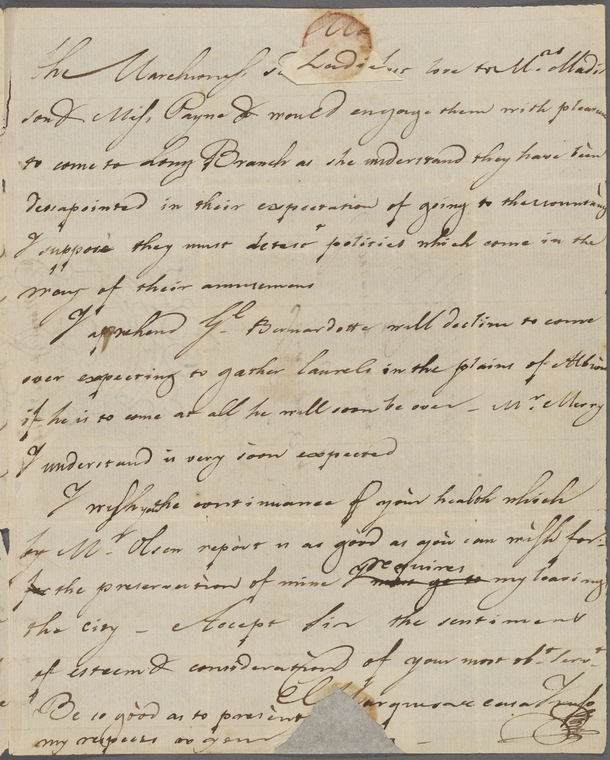 The Marchioness love to Mrs. Madi
son & Miss Payne & would engage them with pleasure
to come to Long Branch as she understand they have been
desapointed in their expectation of going to the country
I suppose they must detest politics which come in the
way of their amusement
I apprehend Gl. Bernardotte will decline to come
over expecting to gather laurels in the plains of Albion
if he is to come at all he will soon be over _ Mr. Merry
I understand is very soon expected
I wish you the continuance of your health which
by Mr. Olsen report is as good as you can wish for_
the preservation of mine requires my leaving
the city _ Accept Sir the sentiment
of esteem & consideration of your most obt. servt.
El Marques de casa Yrujo
Be so good as to present
my respects to your